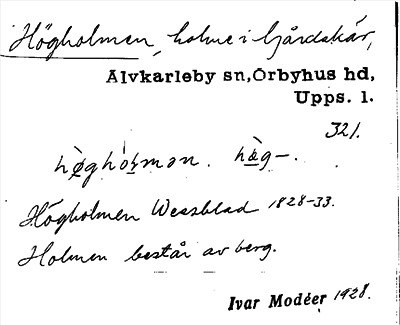 Högholmen, holme i Gårdskär,
Älvkarleby sn, Örbyhus hd,
Upps. l.
321.
hø̀ghòl̥mən. hàg-.
Högholmen Wessblad 1828-33.
Holmen består av berg.
Ivar Modéer 1928.